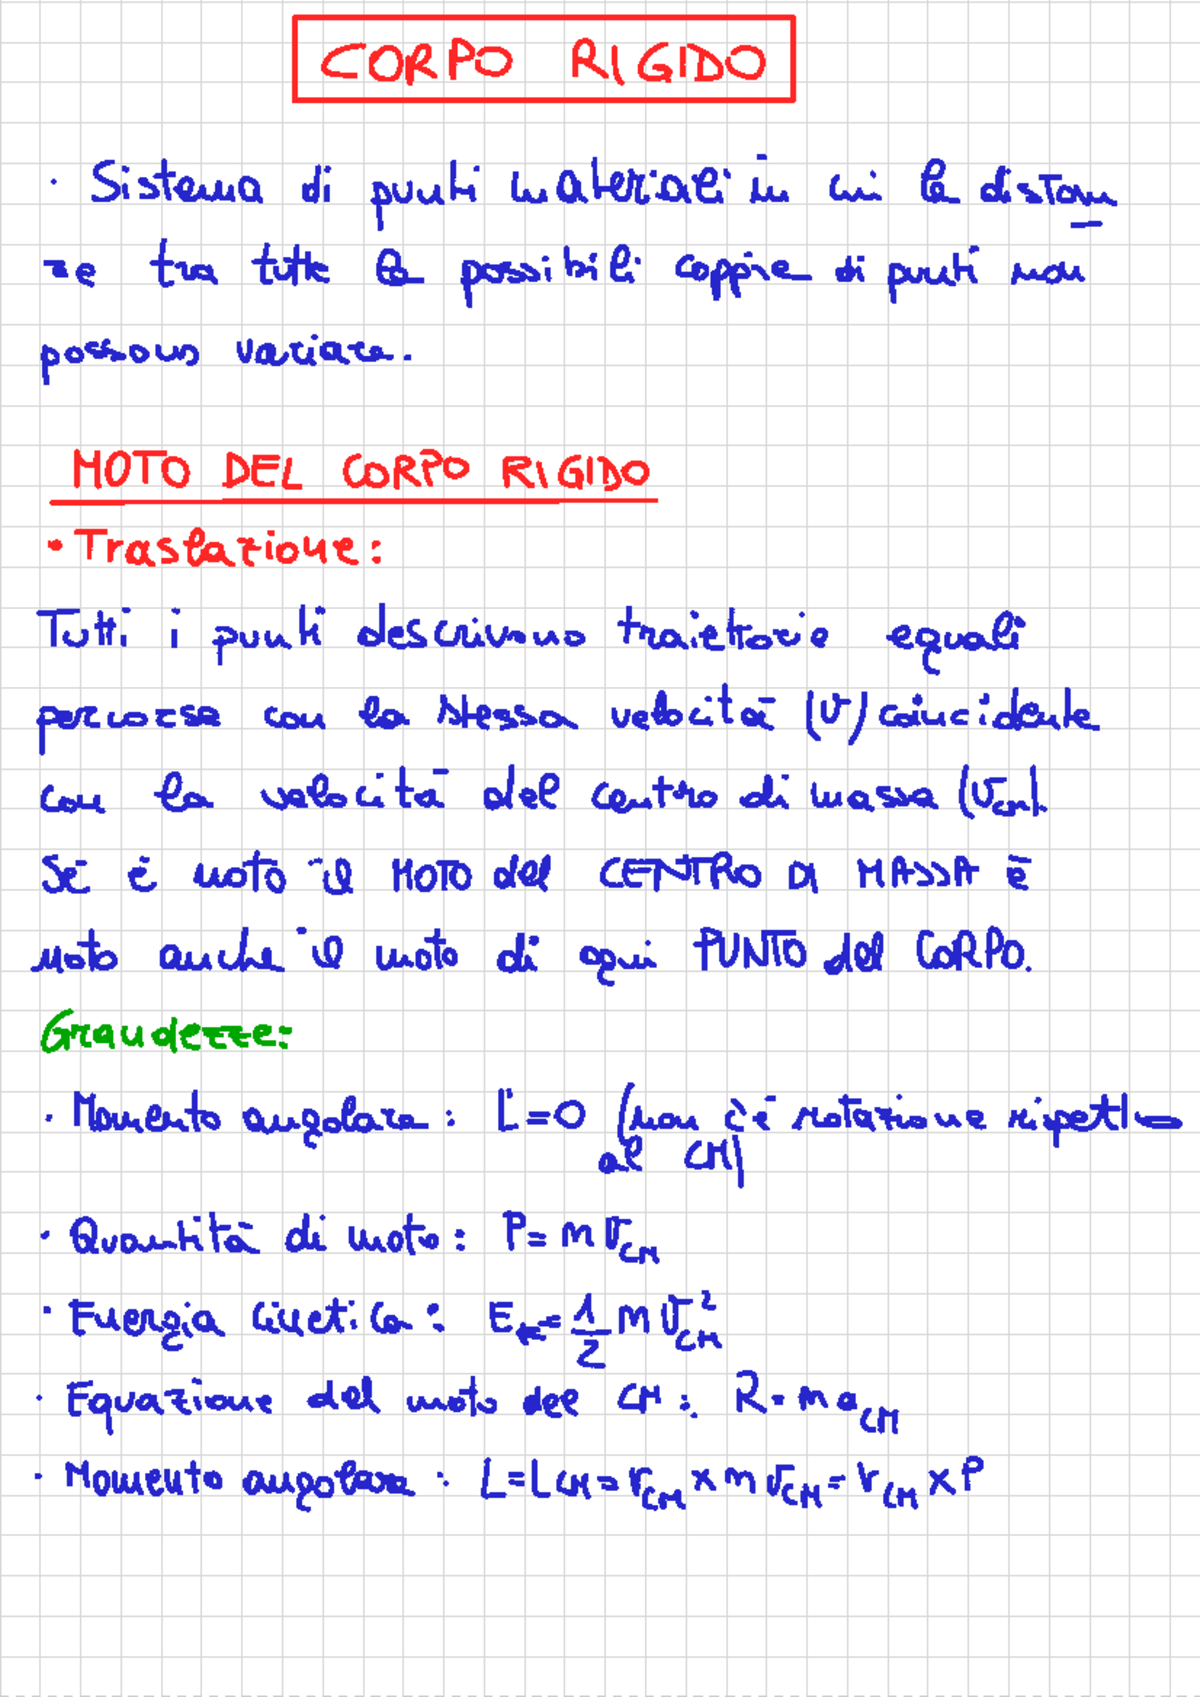 CORPO RIGIDO
· Sistema di punti materiali in cui le distan
ze tra tutte le possibili coppie di punti non
possono variare.
MOTO DEL CORPO RIGIDO
• Traslazione:
Tutti i punti descrivono traiettorie eguali
percorse con la stessa velocità (v) coincidente
con la velocità del centro di massa (vCM).
Se è noto il MOTO del CENTRO DI MASSA è
noto anche il moto di ogni PUNTO del CORPO.
Grandezze:
· Momento angolare: L'=0 (non c'è rotazione rispetto
al CM)
· Quantità di moto: P=mvCM
· Energia cinetica: Ek=1/2 mv²CM
· Equazione del moto del CM: R=maCM
· Momento angolare: L=LCM=rCM×mvCM=rCM×P